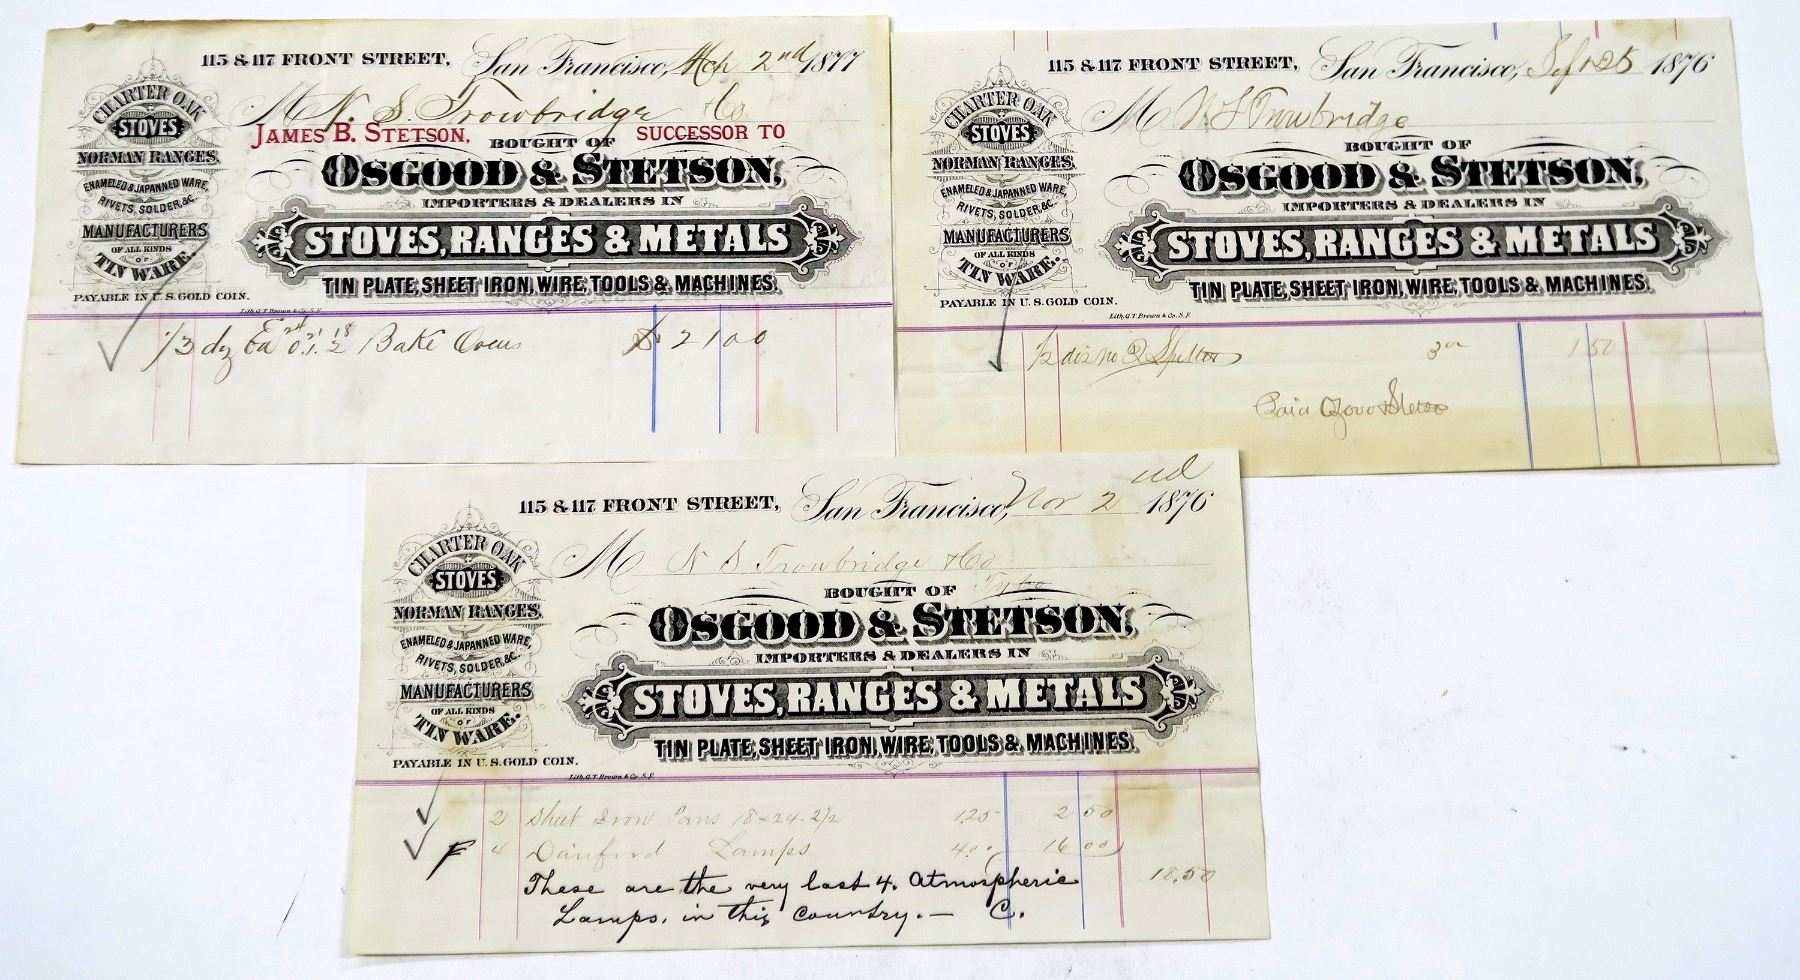 115 & 117 FRONT STREET, San Francisco, Mch 2nd 1877
M N. S. Trowbridge & Co.
JAMES B. STETSON, SUCCESSOR TO
BOUGHT OF
OSGOOD & STETSON,
IMPORTERS & DEALERS IN
STOVES, RANGES & METALS
TIN PLATE, SHEET IRON, WIRE, TOOLS & MACHINES.
CHARTER OAK
STOVES,
NORMAN RANGES,
ENAMELED & JAPANNED WARE,
RIVETS, SOLDER, &C.
MANUFACTURERS
OF ALL KINDS
OF
TIN WARE.
PAYABLE IN U.S. GOLD COIN.
Lith. G.T. Brown & Co. S.F.
1/3 dz Ea 0. 1. 2 Bake Ovens $ 21 00
115 & 117 FRONT STREET, San Francisco, Sept 25 1876
M N S Trowbridge
BOUGHT OF
OSGOOD & STETSON,
IMPORTERS & DEALERS IN
STOVES, RANGES & METALS
TIN PLATE, SHEET IRON, WIRE, TOOLS & MACHINES.
CHARTER OAK
STOVES,
NORMAN RANGES,
ENAMELED & JAPANNED WARE,
RIVETS, SOLDER, &C.
MANUFACTURERS
OF ALL KINDS
OF
TIN WARE.
PAYABLE IN U.S. GOLD COIN.
Lith. G.T. Brown & Co. S.F.
1/2 doz no 2 3 00 1 50
115 & 117 FRONT STREET, San Francisco, Nov 2nd 1876
M N S Trowbridge & Co
Tybo
BOUGHT OF
OSGOOD & STETSON,
IMPORTERS & DEALERS IN
STOVES, RANGES & METALS
TIN PLATE, SHEET IRON, WIRE, TOOLS & MACHINES.
CHARTER OAK
STOVES,
NORMAN RANGES,
ENAMELED & JAPANNED WARE,
RIVETS, SOLDER, &C.
MANUFACTURERS
OF ALL KINDS
OF
TIN WARE.
PAYABLE IN U.S. GOLD COIN.
Lith. G.T. Brown & Co. S.F.
2 Sheet Iron Pans 18-24. 2 1/2 125 2 50
4 Danford Lamps 4 00 16 00
18.50
These are the very last 4. Atmospheric
Lamps. in this country. — C.